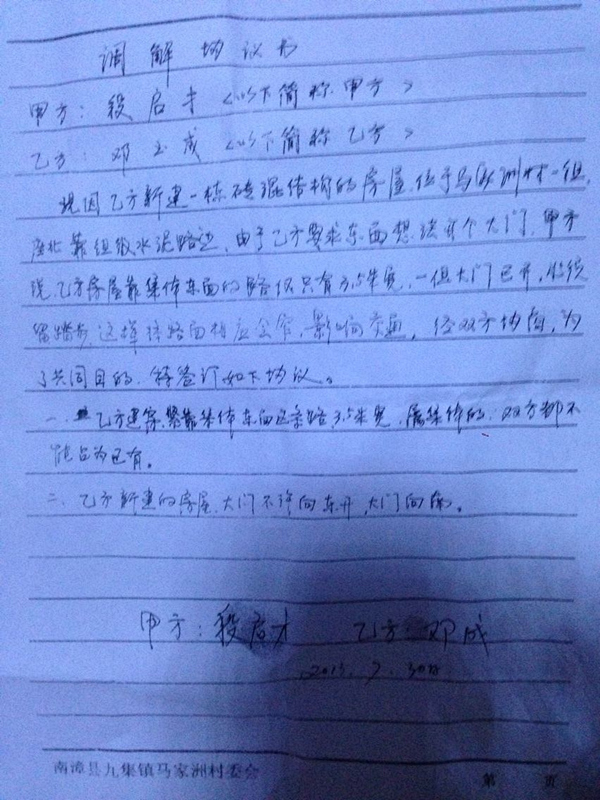 调解协议书
甲方：段启才〈以下简称甲方〉
乙方：邓玉成〈以下简称乙方〉
现因乙方新建一栋砖混结构的房屋，位于马家洲村一组，
座北靠组级水泥路边，由于乙方要求东面想读开个大门，甲方
说，乙方房屋靠集体东面的路仅只有3.5米宽，一但大门已开，必须
留踏步，这样将路面相应会窄，影响交通，经双方协商，为
了共同目的，特签订如下协议。
一、乙方建房，紧靠集体东面这条路3.5米宽，属集体的，双方都不
能占为已有。
二、乙方新建的房屋，大门不许向东开，大门向南。
甲方：段启才 乙方：邓成
2013.7.30日
南漳县九集镇马家洲村委会
第 页